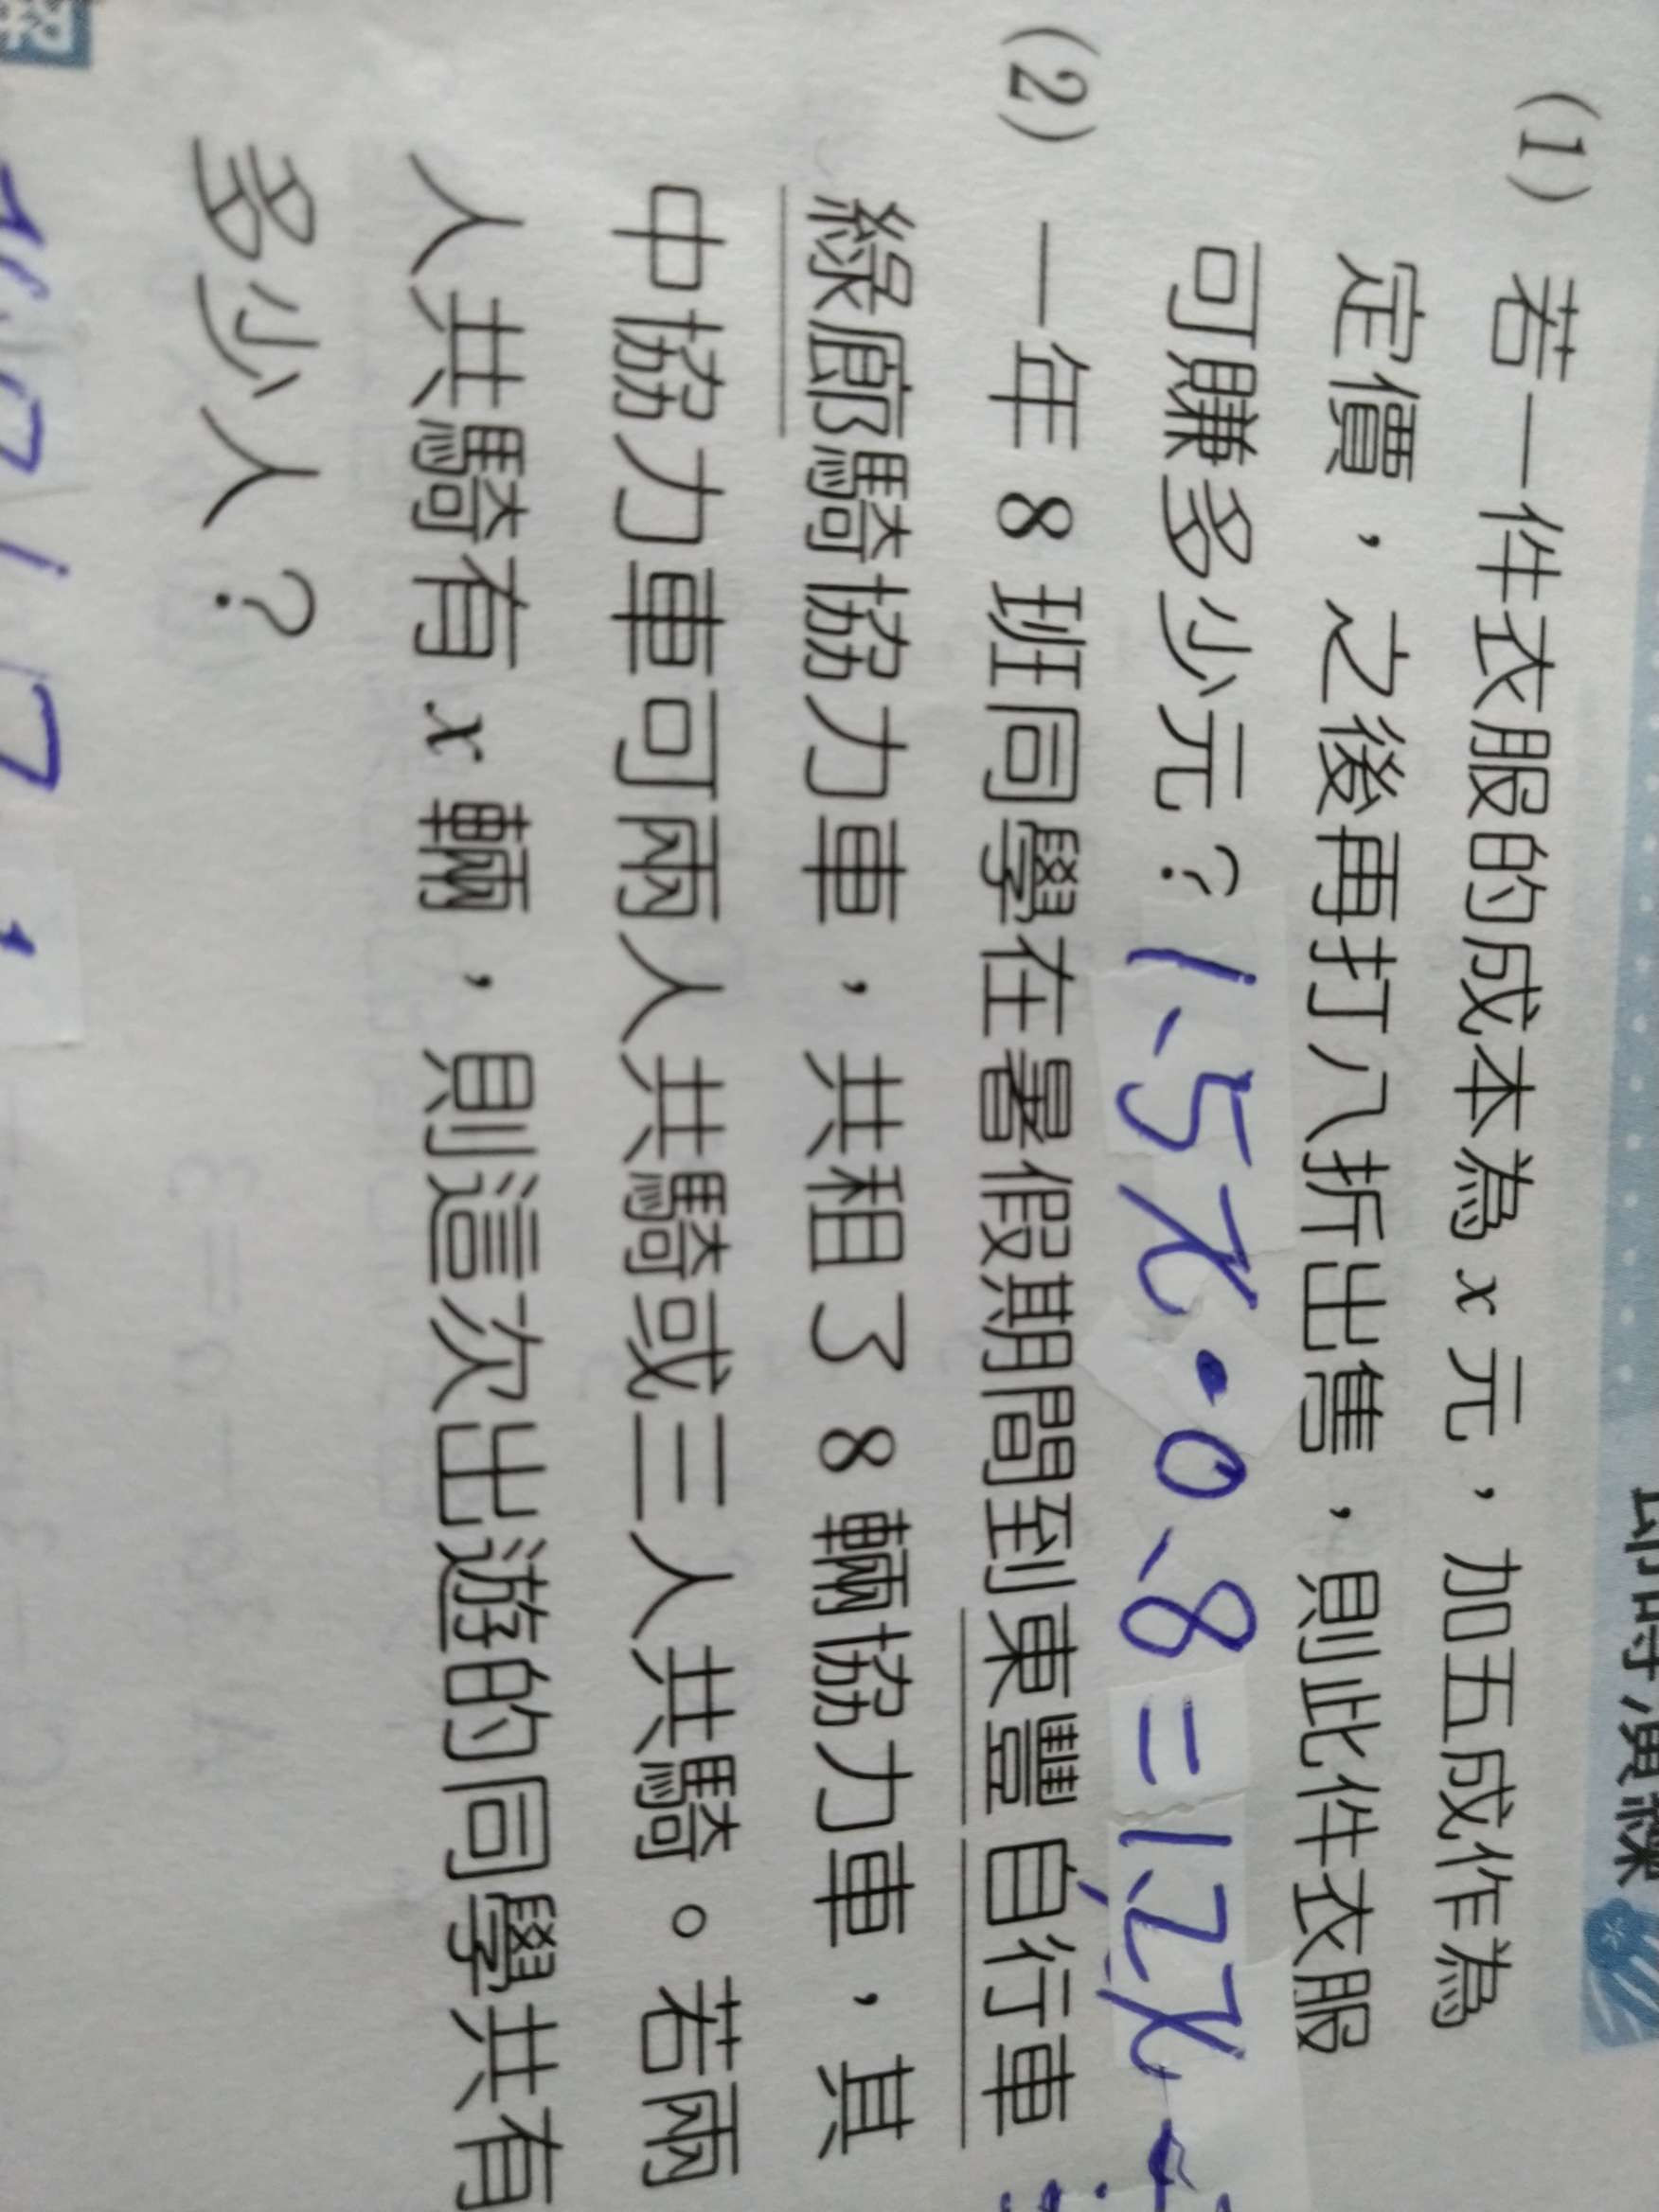 (1) 若一件衣服的成本為 x 元，加五成作為
定價，之後再打八折出售，則此件衣服
可賺多少元？1.5x·0.8=1.2x-
(2) 一年 8 班同學在暑假期間到東豐自行車
綠廊騎協力車，共租了 8 輛協力車，其
中協力車可兩人共騎或三人共騎。若兩
人共騎有 x 輛，則這次出遊的同學共有
多少人？